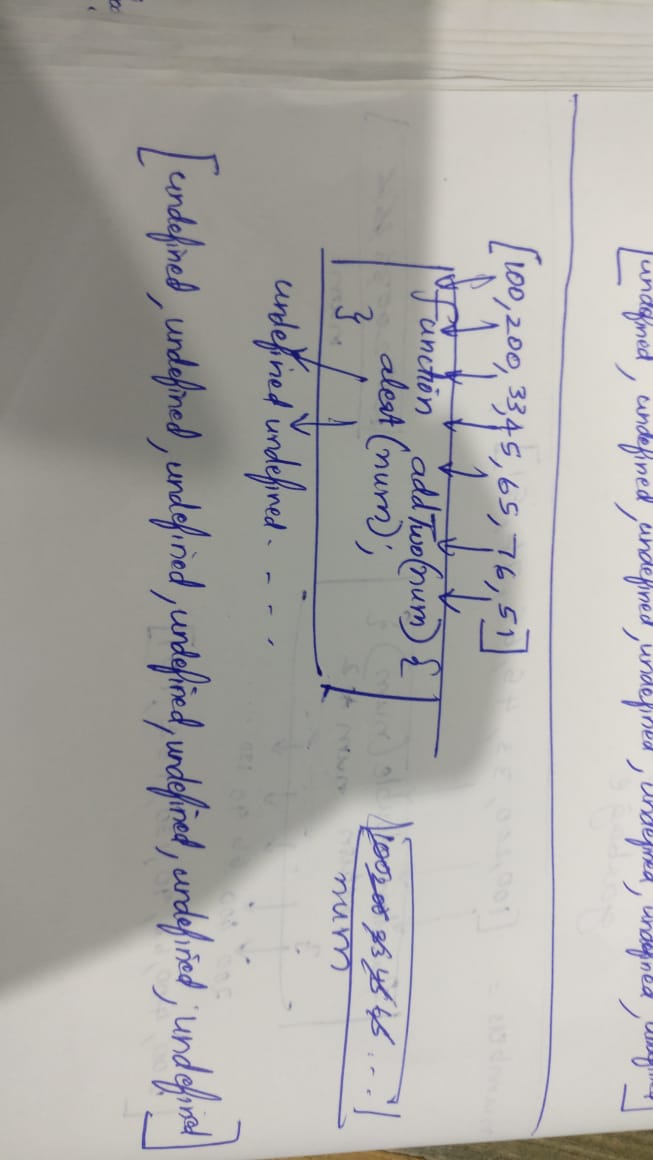 [undefined, undefined, undefined, undefined, undefined, undefined, undefined]
[100, 200, 33, 45, 65, 76, 51]
function addTwo(num) {
alert(num);
}
100 200 33 45 65 ...
num
undefined undefined. - - - ,
[undefined, undefined, undefined, undefined, undefined, undefined, undefined]